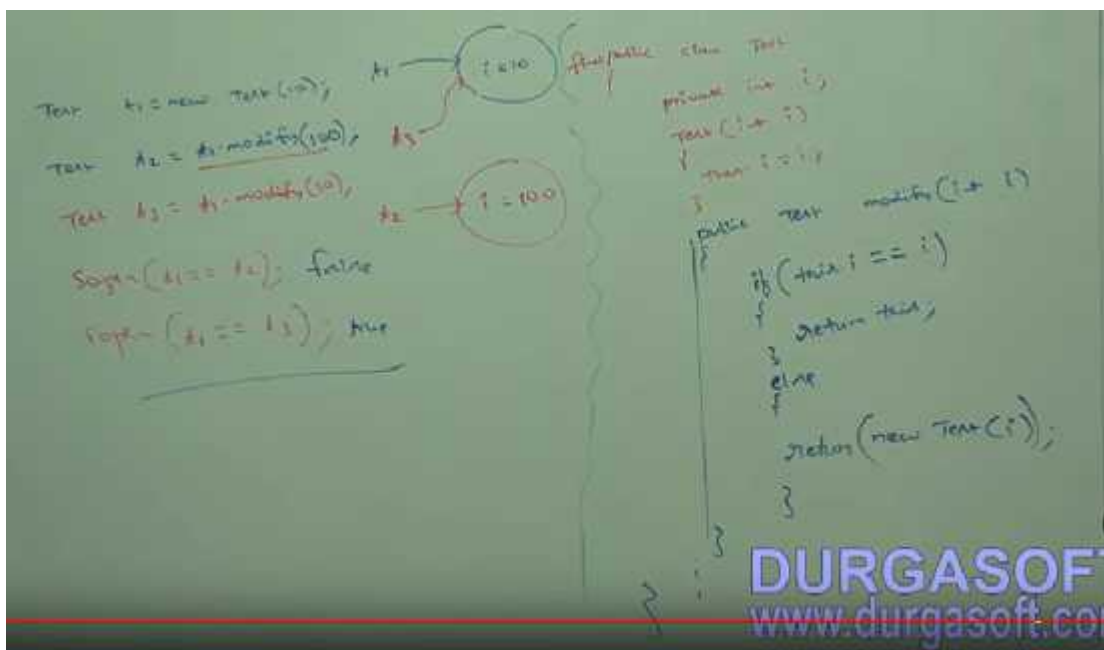 Test t1 = new Test(10);
Test t2 = t1.modify(100);
Test t3 = t1.modify(10);
Sopln(t1 == t2); false
Sopln(t1 == t3); true
t1
i = 10
t3
t2
i = 100
final public class Test
{
private int i;
Test(int i)
{
this.i = i;
}
public Test modify(int i)
{
if(this.i == i)
{
return this;
}
else
{
return(new Test(i));
}
}
}
DURGASOFT
www.durgasoft.co